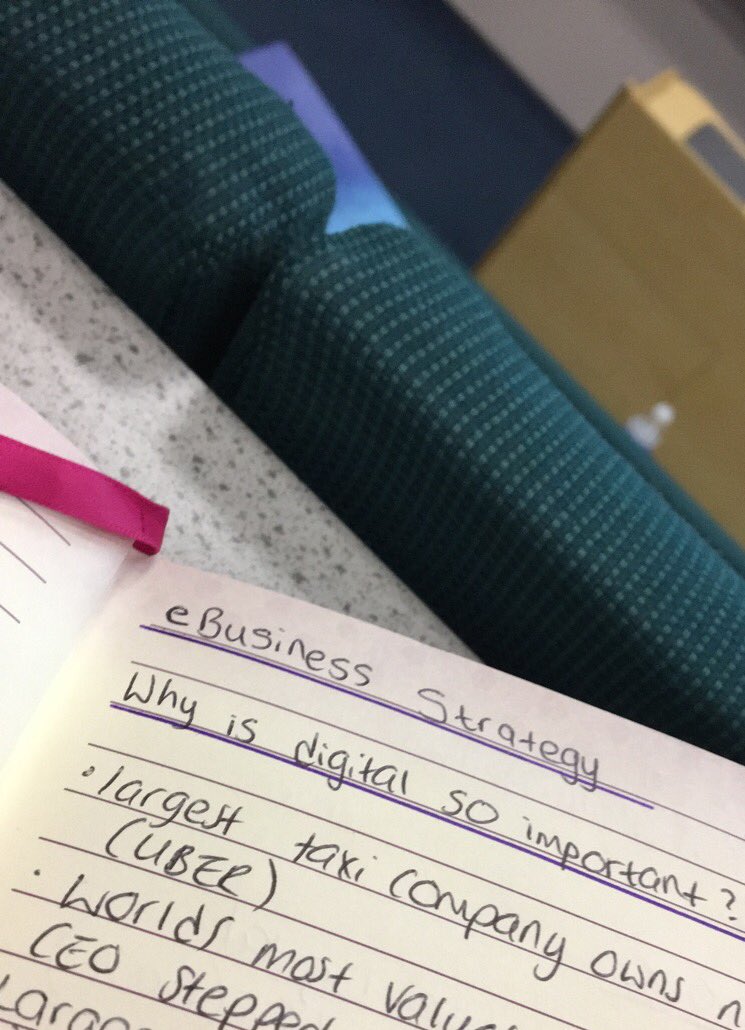 eBusiness Strategy
Why is digital so important?
• largest taxi company owns
(UBER)
• Worlds most
CEO stepped